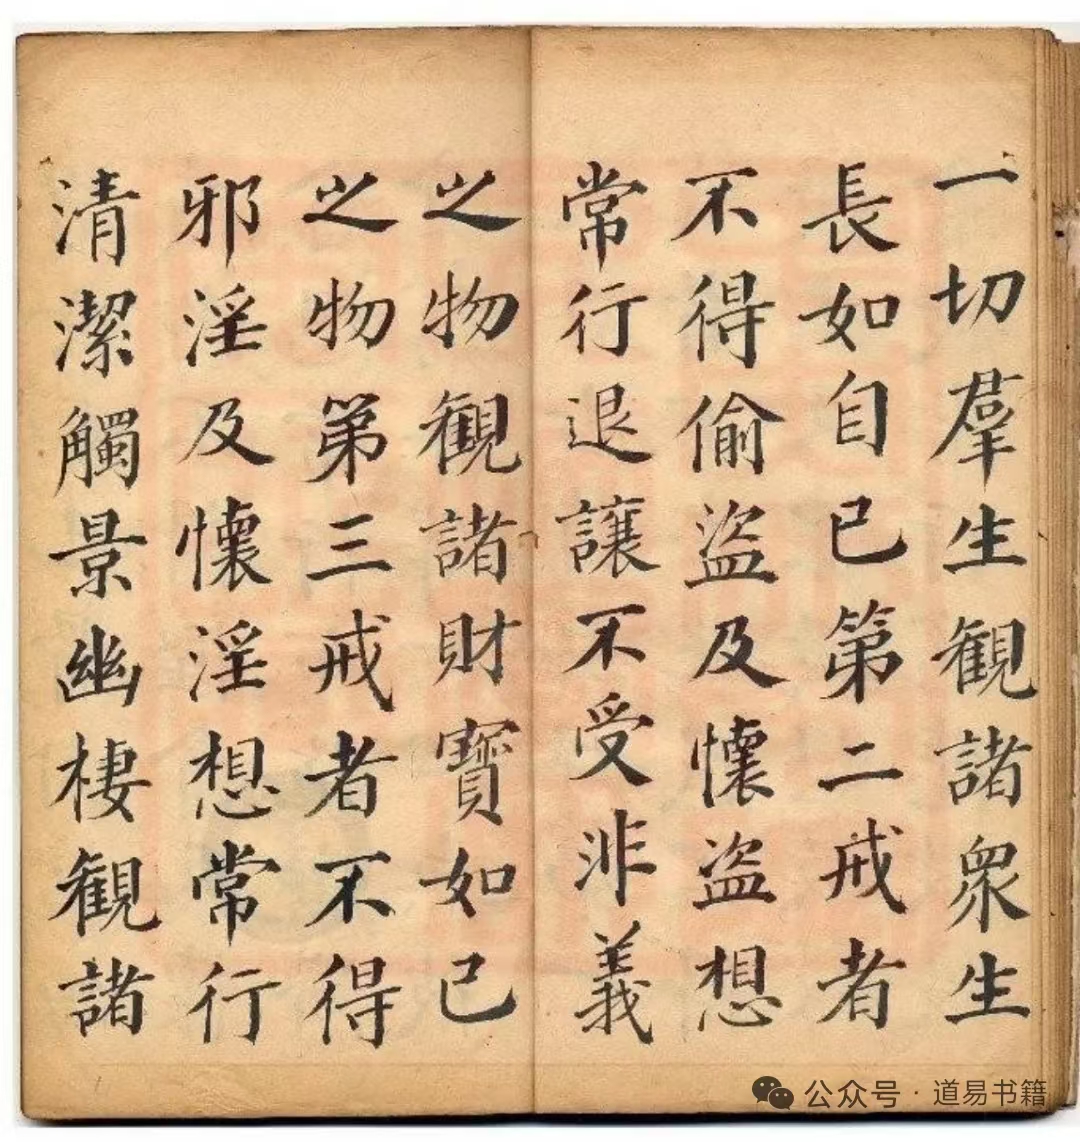 一切羣生觀諸衆生
長如自己第二戒者
不得偷盗及懷盗想
常行退讓不受非義
之物觀諸財寶如己
之物第三戒者不得
邪淫及懷淫想常行
清潔觸景幽棲觀諸
公众号·道易书籍